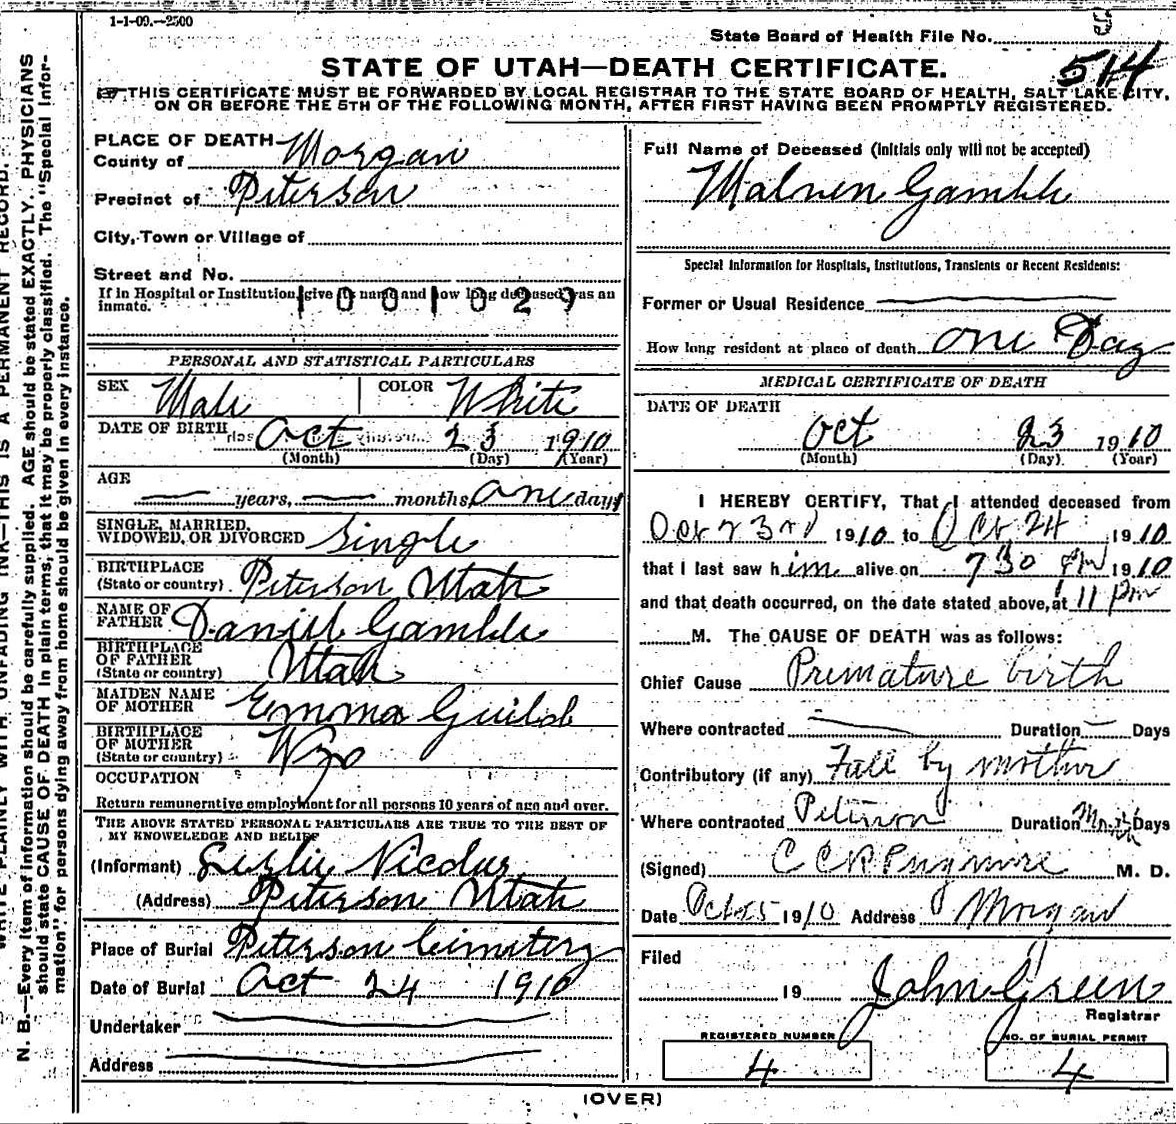 1-1-09.—2500
State Board of Health File No.
514
STATE OF UTAH—DEATH CERTIFICATE.
THIS CERTIFICATE MUST BE FORWARDED BY LOCAL REGISTRAR TO THE STATE BOARD OF HEALTH, SALT LAKE CITY,
ON OR BEFORE THE 5TH OF THE FOLLOWING MONTH, AFTER FIRST HAVING BEEN PROMPTLY REGISTERED.
PLACE OF DEATH—
County of Morgan
Precinct of Peterson
City, Town or Village of
Street and No.
If in Hospital or Institution, give its name and how long deceased was an
inmate.
1001029
PERSONAL AND STATISTICAL PARTICULARS
SEX Male COLOR White
DATE OF BIRTH Oct 23 1910
(Month) (Day) (Year)
AGE
years, months, one days
SINGLE, MARRIED,
WIDOWED, OR DIVORCED Single
BIRTHPLACE
(State or country) Peterson Utah
NAME OF
FATHER Daniel Gamble
BIRTHPLACE
OF FATHER
(State or country) Utah
MAIDEN NAME
OF MOTHER Emma Guild
BIRTHPLACE
OF MOTHER
(State or country) Wyo
OCCUPATION
Return remunerative employment for all persons 10 years of age and over.
THE ABOVE STATED PERSONAL PARTICULARS ARE TRUE TO THE BEST OF
MY KNOWELEDGE AND BELIEF
(Informant) Leslie Nicolus
(Address) Peterson Utah
Place of Burial Peterson Cemetery
Date of Burial Oct 24 1910
Undertaker
Address
Full Name of Deceased (Initials only will not be accepted)
Malnen Gamble
Special Information for Hospitals, Institutions, Transients or Recent Residents:
Former or Usual Residence
How long resident at place of death one Day
MEDICAL CERTIFICATE OF DEATH
DATE OF DEATH
Oct 23 1910
(Month) (Day) (Year)
I HEREBY CERTIFY, That I attended deceased from
Oct 23rd 1910 to Oct 24 1910
that I last saw him alive on 7 30 pm 1910
and that death occurred, on the date stated above, at 11 Pm
M. The CAUSE OF DEATH was as follows:
Chief Cause Premature birth
Where contracted Duration Days
Contributory (if any) Fall by mother
Where contracted Peterson Duration Days
(Signed) C C R Pugmire M. D.
Date Oct 25 1910 Address Morgan
Filed
19 John Green
Registrar
REGISTERED NUMBER
4
NO. OF BURIAL PERMIT
4
(OVER)
N. B.—Every item of information should be carefully supplied. AGE should be stated EXACTLY. PHYSICIANS
should state CAUSE OF DEATH in plain terms, that it may be properly classified. The "Special Infor-
mation" for persons dying away from home should be given in every instance.
WRITE PLAINLY WITH UNFADING INK—THIS IS A PERMANENT RECORD.